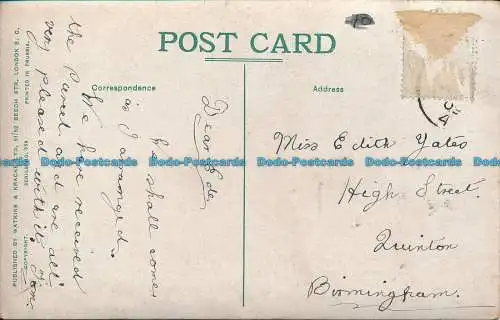 POST CARD
Correspondence
Address
Dear Ede,
he shall come
as I arranged.
We have received
the Parcel and are all
very pleased with it.
Miss Edith Yates
High Street.
Quinton
Birmingham.
PUBLISHED BY WATKINS & KRACKE, LTD., BEECH STR., LONDON E.C.
COPYRIGHT.
PRINTED IN PRUSSIA.
Dodo-Postcards Dodo-Postcards Dodo-Postcards Dodo-Postcards Dodo-Postcards